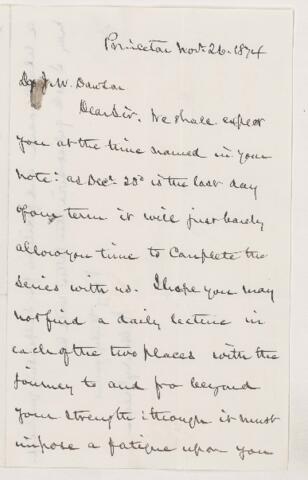 Princeton Nov. 26. 1874
Dr J. W. Dawson
Dear Sir. We shall expect
you at the time named in your
note: as Decr. 23d is the last day
of our term it will just barely
allow you time to complete the
series with us. I hope you may
not find a daily lecture in
each of the two places with the
journey to and fro beyond
your strength: though it must
impose a fatigue upon you